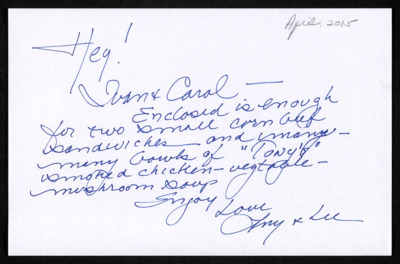 April, 2015
Hey!
Ivan & Carol —
Enclosed is enough
for two small corn beef
sandwiches — and many —
many bowls of "Tony's"
smoked chicken - vegtable -
mushroom soup
Enjoy Love
& Lee